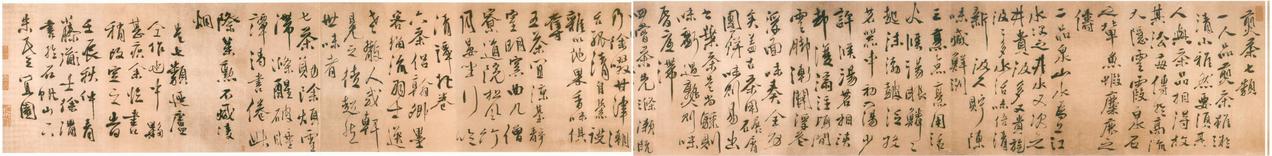 煎茶七類
一人品煎茶雖微
清小雅然要須其
人與茶品相得故
其法每傳於高流
大隱雲霞泉石
之輩魚蝦麋鹿之
儔
二品泉山水為上江
水次之井水又次之
井貴汲多又貴旋
汲汲多水活味倍清
新汲久貯陳
味減鮮冽
三烹點烹用活
火候湯眼鱗鱗
起沫浡鼓泛投
茗器中初入湯少
許候湯茗相浹
却復滿注頃間
雲脚漸開浮花
浮面味奏全功
矣蓋古茶用碾屑
團餅味則易出
葉茶是尚驟則
味虧過熟則味
昏底滯
四嘗茶先滌漱既
乃徐啜甘津潮
舌孤清自縈設
雜以他果香味俱
奪
五茶宜涼臺靜
室明窗曲几僧
寮道院松風竹
月晏坐行吟
清譚把卷
六茶侶翰卿墨
客緇流羽士逸
老散人或軒
冕之徒超然
世味者
七茶勛除煩雪
滯滌酲破睡
譚渴書倦此
際策勛不減凌
煙
是七類乃盧
仝作也中夥
甚疾余臨書
稍改定之時
壬辰秋仲青
藤道士徐渭
書於石帆山下
朱氏三宜園